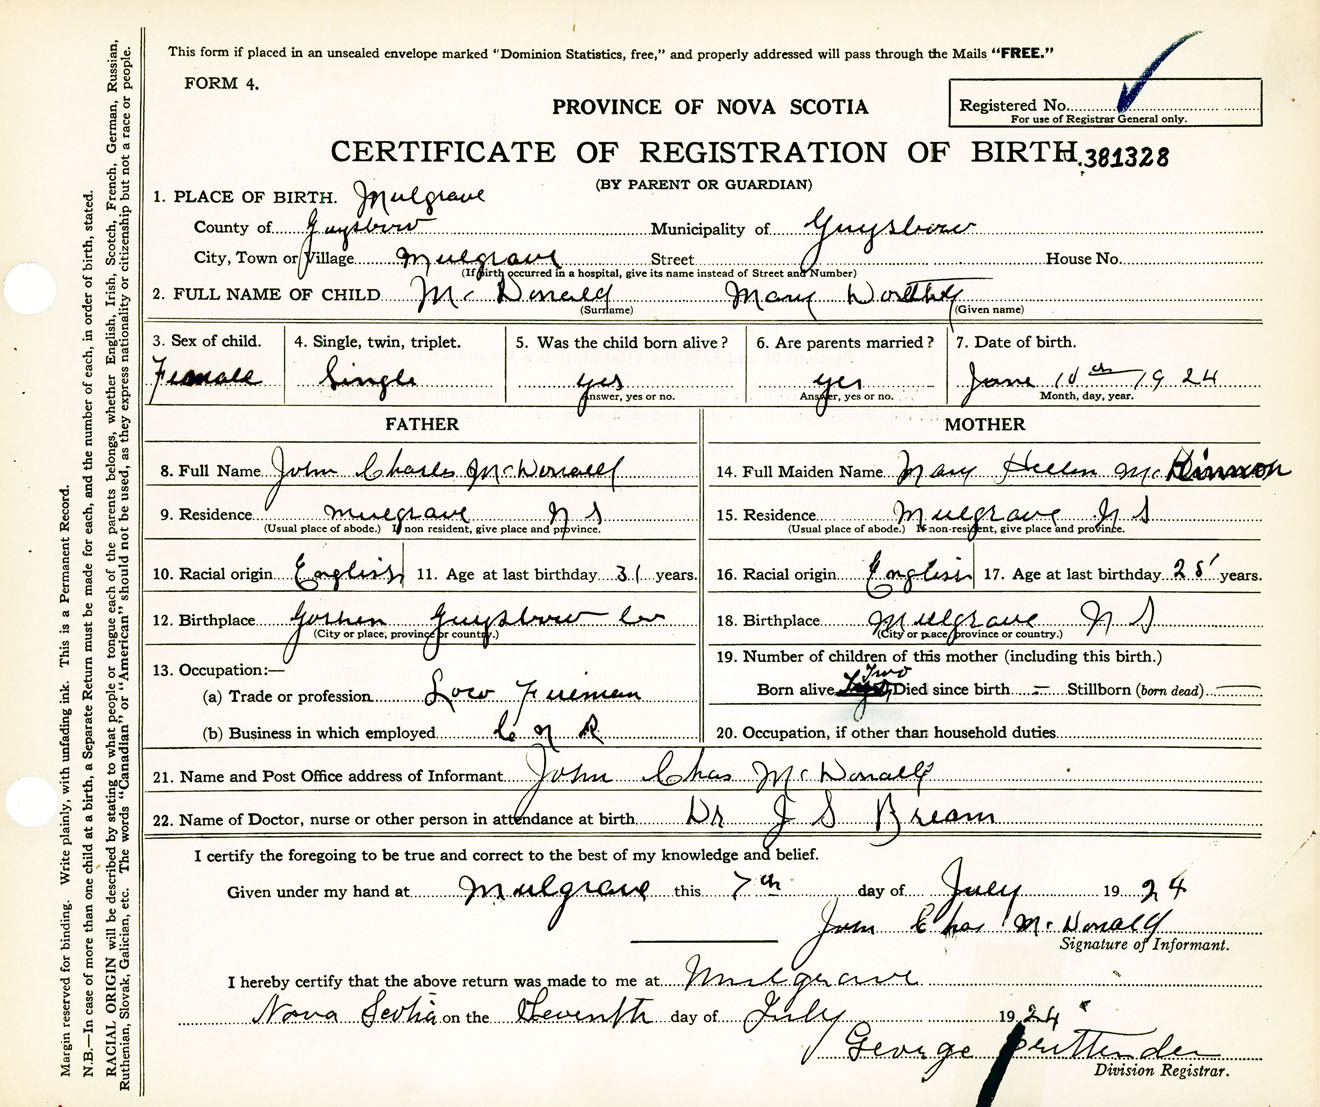 This form if placed in an unsealed envelope marked "Dominion Statistics, free," and properly addressed will pass through the Mails "FREE."
FORM 4.
PROVINCE OF NOVA SCOTIA
Registered No.
For use of Registrar General only.
CERTIFICATE OF REGISTRATION OF BIRTH. 381328
(BY PARENT OR GUARDIAN)
1. PLACE OF BIRTH. Mulgrave
County of Guysboro Municipality of Guysboro
City, Town or Village Mulgrave Street House No.
(If birth occurred in a hospital, give its name instead of Street and Number)
2. FULL NAME OF CHILD McDonald Mary Dorthy
(Surname) (Given name)
3. Sex of child. 4. Single, twin, triplet. 5. Was the child born alive? 6. Are parents married? 7. Date of birth.
Female Single yes yes June 10th 1924
Answer, yes or no. Answer, yes or no. Month, day, year.
FATHER MOTHER
8. Full Name John Charles McDonald 14. Full Maiden Name Mary Hellen McKinnon
9. Residence Mulgrave N S 15. Residence Mulgrave N S
(Usual place of abode.) If non resident, give place and province. (Usual place of abode.) If non-resident, give place and province.
10. Racial origin English 11. Age at last birthday 31 years. 16. Racial origin English 17. Age at last birthday years.
12. Birthplace Goshen Guysboro Co 18. Birthplace Mulgrave N S
(City or place, province or country.) (City or place, province or country.)
13. Occupation:— 19. Number of children of this mother (including this birth.)
Two
(a) Trade or profession Loco Fireman Born alive Died since birth — Stillborn (born dead) —
(b) Business in which employed C N R 20. Occupation, if other than household duties
21. Name and Post Office address of Informant John Chas McDonald
22. Name of Doctor, nurse or other person in attendance at birth Dr J S Brean
I certify the foregoing to be true and correct to the best of my knowledge and belief.
Given under my hand at Mulgrave this 7th day of July 1924
John Chas McDonald
Signature of Informant.
I hereby certify that the above return was made to me at Mulgrave
Nova Scotia on the Seventh day of July 1924
George Cruttenden
Division Registrar.
Margin reserved for binding. Write plainly, with unfading ink. This is a Permanent Record.
N.B.—In case of more than one child at a birth, a Separate Return must be made for each, and the number of each, in order of birth, stated.
RACIAL ORIGIN will be described by stating to what people or tongue each of the parents belongs, whether English, Irish, Scotch, French, German, Russian,
Ruthenian, Slovak, Galician, etc. The words "Canadian" or "American" should not be used, as they express nationality or citizenship but not a race or people.